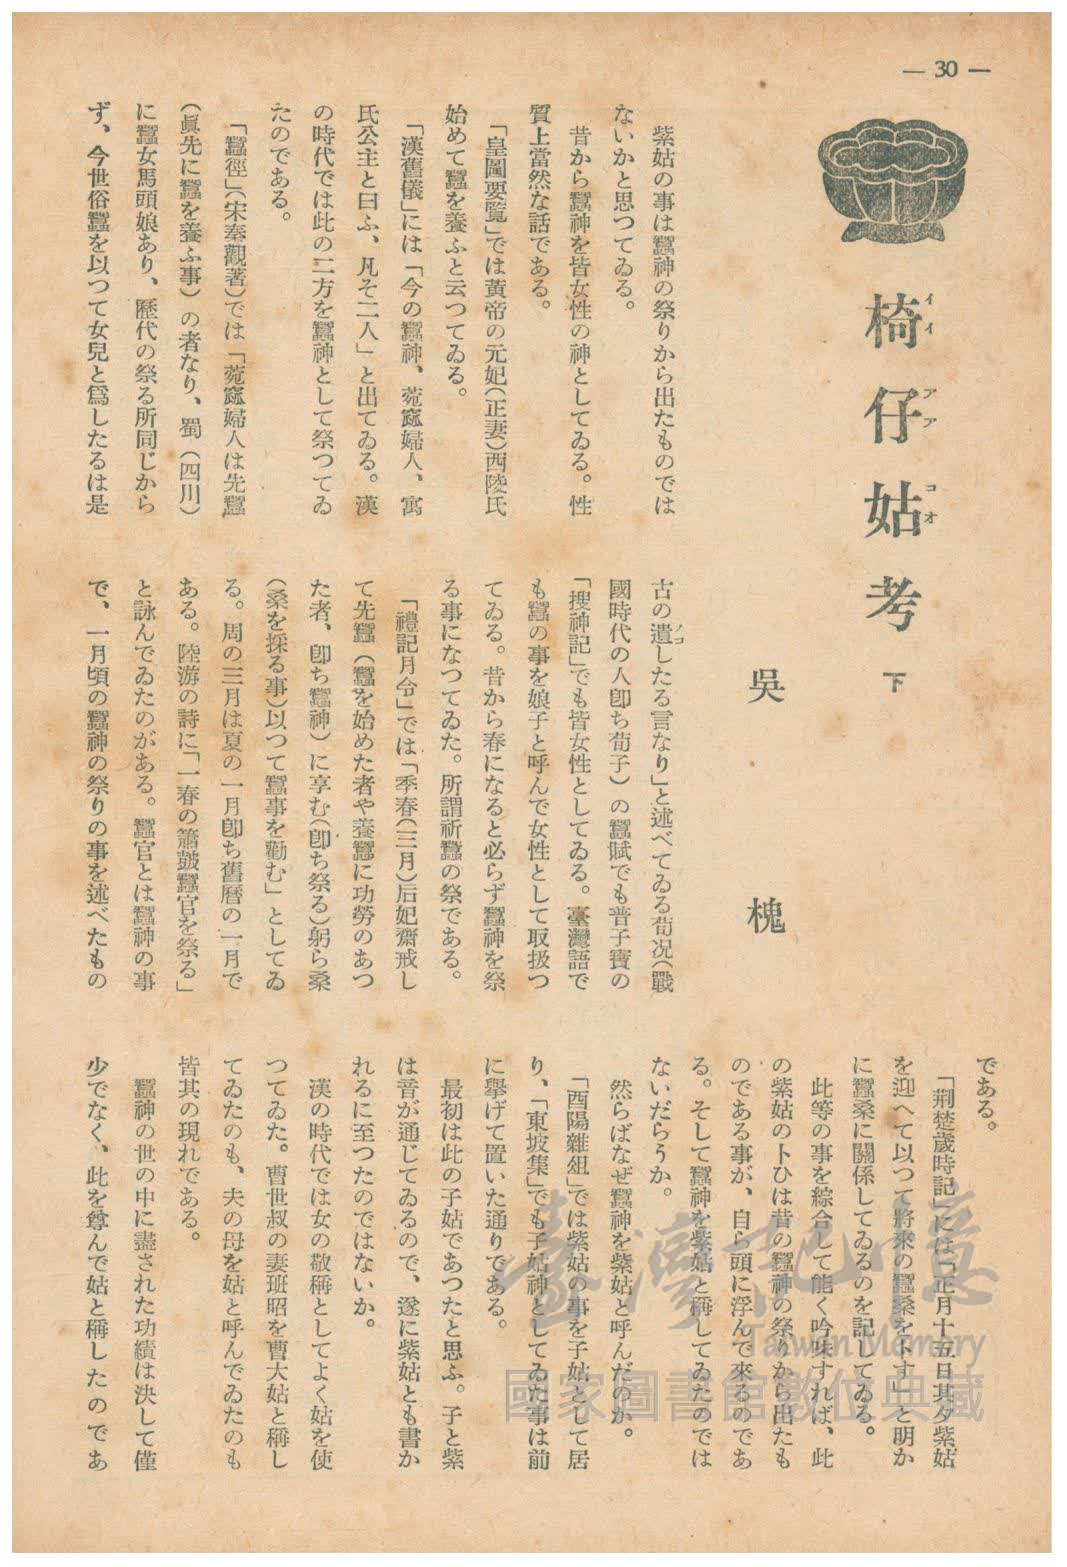 — 30 —
椅仔姑考 下
イイ アア コオ
吳槐
紫姑の事は蠶神の祭りから出たものでは
ないかと思つてゐる。
昔から蠶神を皆女性の神としてゐる。性
質上當然な話である。
「皇圖要覽」では黃帝の元妃(正妻)西陵氏
始めて蠶を養ふと云つてゐる。
「漢舊儀」には「今の蠶神、菀窳婦人、寓
氏公主と曰ふ、凡そ二人」と出てゐる。漢
の時代では此の二方を蠶神として祭つてゐ
たのである。
「蠶徑」(宋秦觀著)では「菀窳婦人は先蠶
(眞先に蠶を養ふ事)の者なり、蜀(四川)
に蠶女馬頭娘あり、歷代の祭る所同じから
ず、今世俗蠶を以つて女兒と爲したるは是
古の遺したる言なり」と述べてゐる荀况(戰
ノコ
國時代の人卽ち荀子)の蠶賦でも晉子寶の
「搜神記」でも皆女性としてゐる。臺灣語で
も蠶の事を娘子と呼んで女性として取扱つ
てゐる。昔から春になると必らず蠶神を祭
る事になつてゐた。所謂祈蠶の祭である。
「禮記月令」では「季春(三月)后妃齋戒し
て先蠶(蠶を始めた者や養蠶に功勞のあつ
た者、卽ち蠶神)に享む(卽ち祭る)躬ら桑
(桑を採る事)以つて蠶事を勸む」としてゐ
る。周の三月は夏の一月卽ち舊曆の一月で
ある。陸游の詩に「一春の簫皷蠶官を祭る」
と詠んでゐたのがある。蠶官とは蠶神の事
で、一月頃の蠶神の祭りの事を述べたもの
である。
「荆楚歲時記」には「正月十五日其夕紫姑
を迎へて以つて將來の蠶桑を卜す」と明か
に蠶桑に關係してゐるのを記してゐる。
此等の事を綜合して能く吟味すれば、此
の紫姑の卜ひは昔の蠶神の祭りから出たも
のである事が、自ら頭に浮んで來るのであ
る。そして蠶神を紫姑と稱してゐたのでは
ないだらうか。
然らばなぜ蠶神を紫姑と呼んだのか。
「酉陽雜俎」では紫姑の事を子姑として居
り、「東坡集」でも子姑神としてゐた事は前
に擧げて置いた通りである。
最初は此の子姑であつたと思ふ。子と紫
は音が通じてゐるので、遂に紫姑とも書か
れるに至つたのではないか。
漢の時代では女の敬稱としてよく姑を使
つてゐた。曹世叔の妻班昭を曹大姑と稱し
てゐたのも、夫の母を姑と呼んでゐたのも
皆其の現れである。
蠶神の世の中に盡された功績は決して僅
少でなく、此を尊んで姑と稱したのであ
臺灣記憶
Taiwan Memory
國家圖書館數位典藏